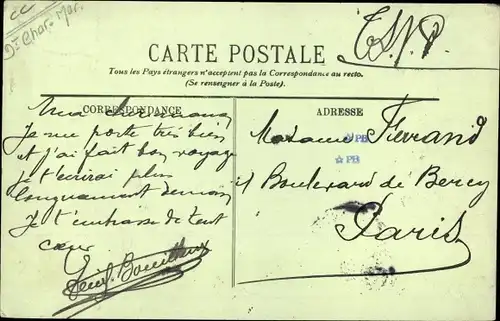 CC
Dt Char. Mar.
T.S.V.P.
CARTE POSTALE
Tous les Pays étrangers n'acceptent pas la Correspondance au recto.
(Se renseigner à la Poste).
CORRESPONDANCE
Ma
Je me porte très bien
et j'ai fait bon voyage
je t'écrirai plus
longuement demain
Je t'embrasse de tout
cœur
ADRESSE
Madame Ferrand
Boulevard de Bercy
Paris
PB
☆PB